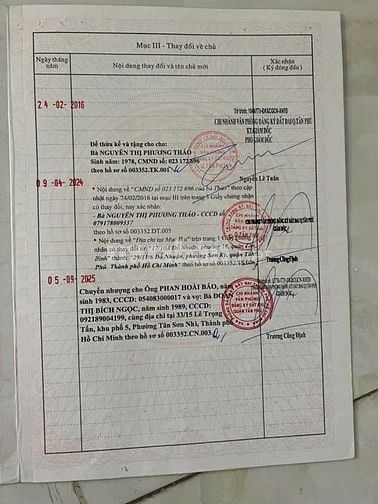 Mục III - Thay đổi về chủ
Ngày tháng năm
Nội dung thay đổi và tên chủ mới
Xác nhận
(Ký đóng dấu)
24 -02- 2016
CHI NHÁNH VĂN PHÒNG ĐĂNG KÝ ĐẤT ĐAI Q.TÂN PHÚ
KT.GIÁM ĐỐC
PHÓ GIÁM ĐỐC
Để thừa kế và tặng cho cho:
Bà NGUYỄN THỊ PHƯƠNG THẢO
Sinh năm: 1978, CMND số: 023 172 696
theo hồ sơ số 003352.TK.001
Nguyễn Lê Tuấn
09 -04- 2024
* Nội dung về "CMND số 023 172 696 của bà Thảo" theo cập
nhật ngày 24/02/2016 tại mục III trên trang 4 Giấy chứng nhận
có thay đổi, nay xác nhận:
- Bà NGUYỄN THỊ PHƯƠNG THẢO - CCCD số
079178009337
theo hồ sơ số 003352.DT.005
* Nội dung về "Địa chỉ tại Mục II.a" trên trang 1 Giấy chứng
có thay đổi từ: Đỗ Nhuận, phường 16, quận Tân
Bình" thành: "29/11/6 Đỗ Nhuận, phường Sơn Kỳ, quận Tân
Phú, Thành phố Hồ Chí Minh" theo hồ sơ 003352.
GIÁM ĐỐC
Trương Công Định
05 -09- 2025
Chuyển nhượng cho Ông PHAN HOÀI BẢO, năm
sinh 1983, CCCD: 054083000017 và vợ: Bà
THỊ BÍCH NGỌC, năm sinh 1989, CCCD:
092189004199, cùng địa chỉ tại 33/15 Lê Trọng
Tấn, khu phố 5, Phường Tân Sơn Nhì, Thành phố
Hồ Chí Minh theo hồ sơ số 003352.CN.003
CHI NHÁNH
VĂN PHÒNG
ĐĂNG KÝ ĐẤT ĐAI
QUẬN TÂN PHÚ
GIÁM ĐỐC
Trương Công Định